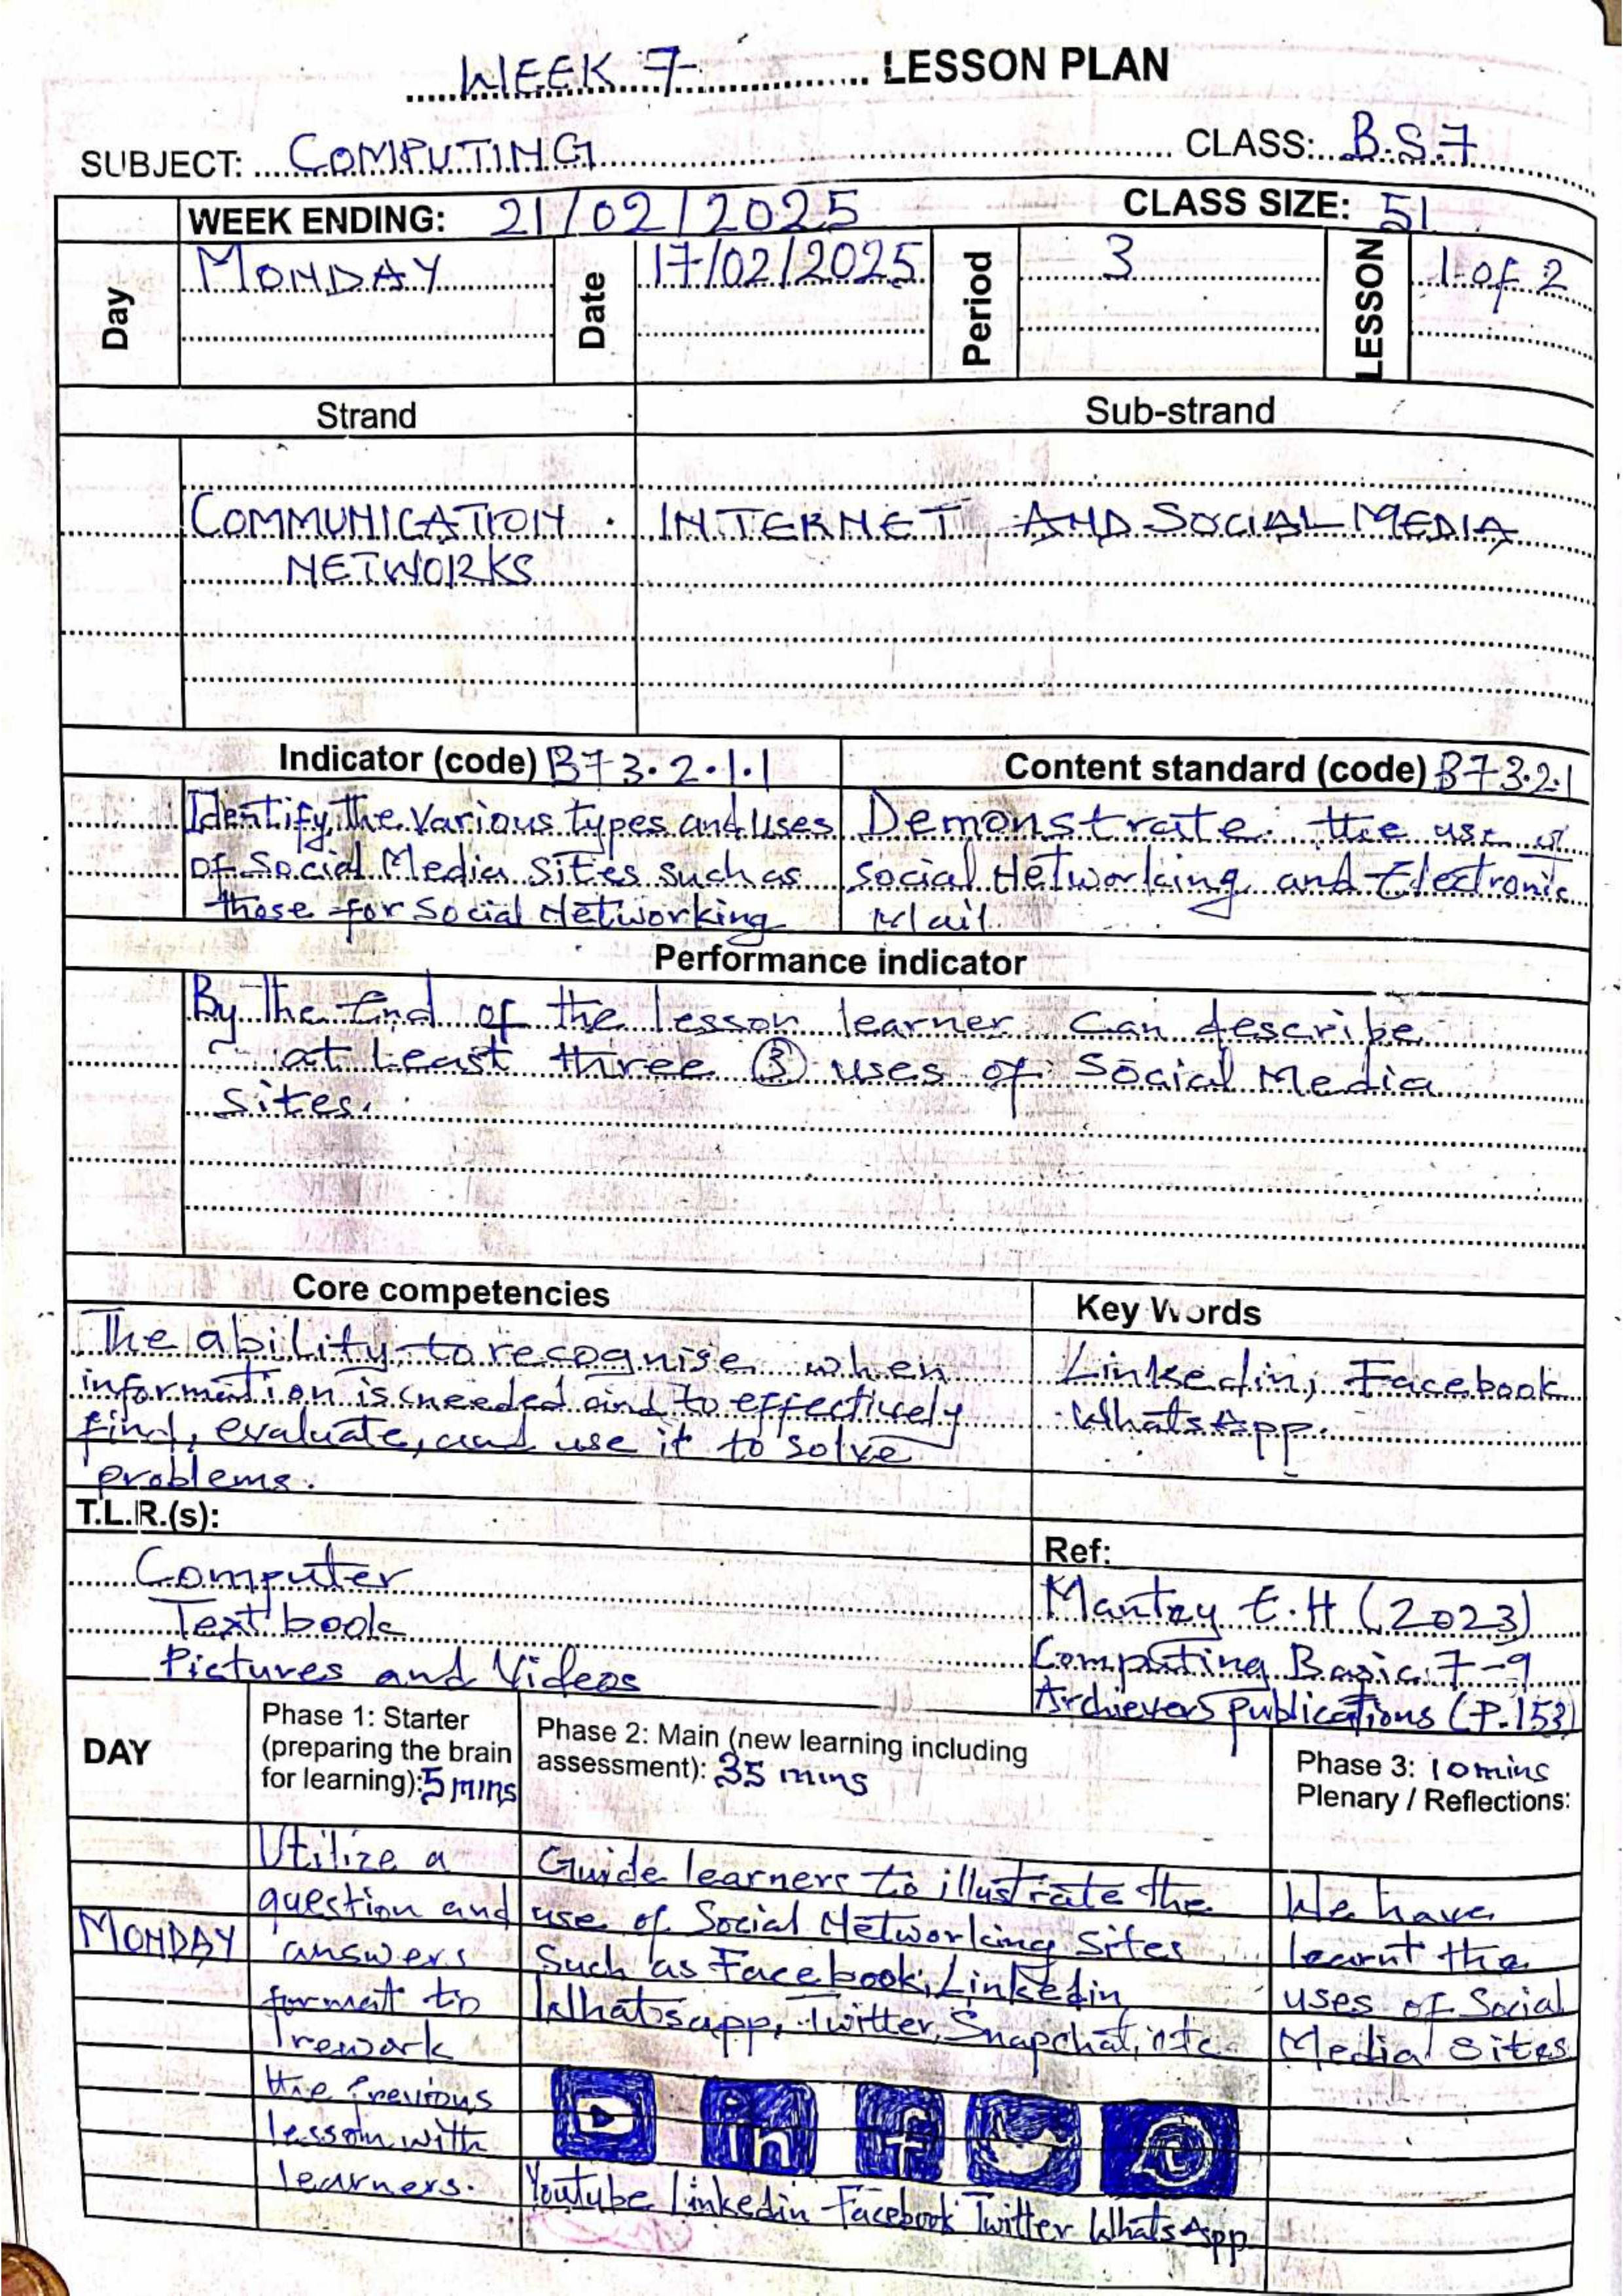 WEEK 7 LESSON PLAN
SUBJECT: COMPUTING CLASS: B.S.7
WEEK ENDING: 21/02/2025 CLASS SIZE: 51
Day MONDAY Date 17/02/2025 Period 3 LESSON 1 of 2
Strand Sub-strand
COMMUNICATION INTERNET AND SOCIAL MEDIA
NETWORKS
Indicator (code) B7 3.2.1.1 Content standard (code) B7 3.2.1
Identify the Various types and Uses
of Social Media Sites such as
those for Social Networking
Demonstrate the use of
Social Networking and Electronic
Mail.
Performance indicator
By the End of the lesson learner can describe
at least three ③ uses of Social Media
sites.
Core competencies
The ability to recognise when
information is needed and to effectively
find, evaluate, and use it to solve
problems.
Key Words
Linkedin, Facebook
WhatsApp.
T.L.R.(s):
Computer
Text book
Pictures and Videos
Ref:
Mantey E.H (2023)
Computing Basic 7-9
Archievers Publications (P.153)
DAY
Phase 1: Starter
(preparing the brain
for learning): 5 mins
Phase 2: Main (new learning including
assessment): 35 mins
Phase 3: 10 mins
Plenary / Reflections:
MONDAY
Utilize a
question and
answers
format to
rework
the previous
lesson with
learners.
Guide learners to illustrate the
use of Social Networking Sites
Such as Facebook, Linkedin
Whatsapp, Twitter, Snapchat, etc
in f
Youtube Linkedin Facebook Twitter WhatsApp
We have
learnt the
uses of Social
Media Sites